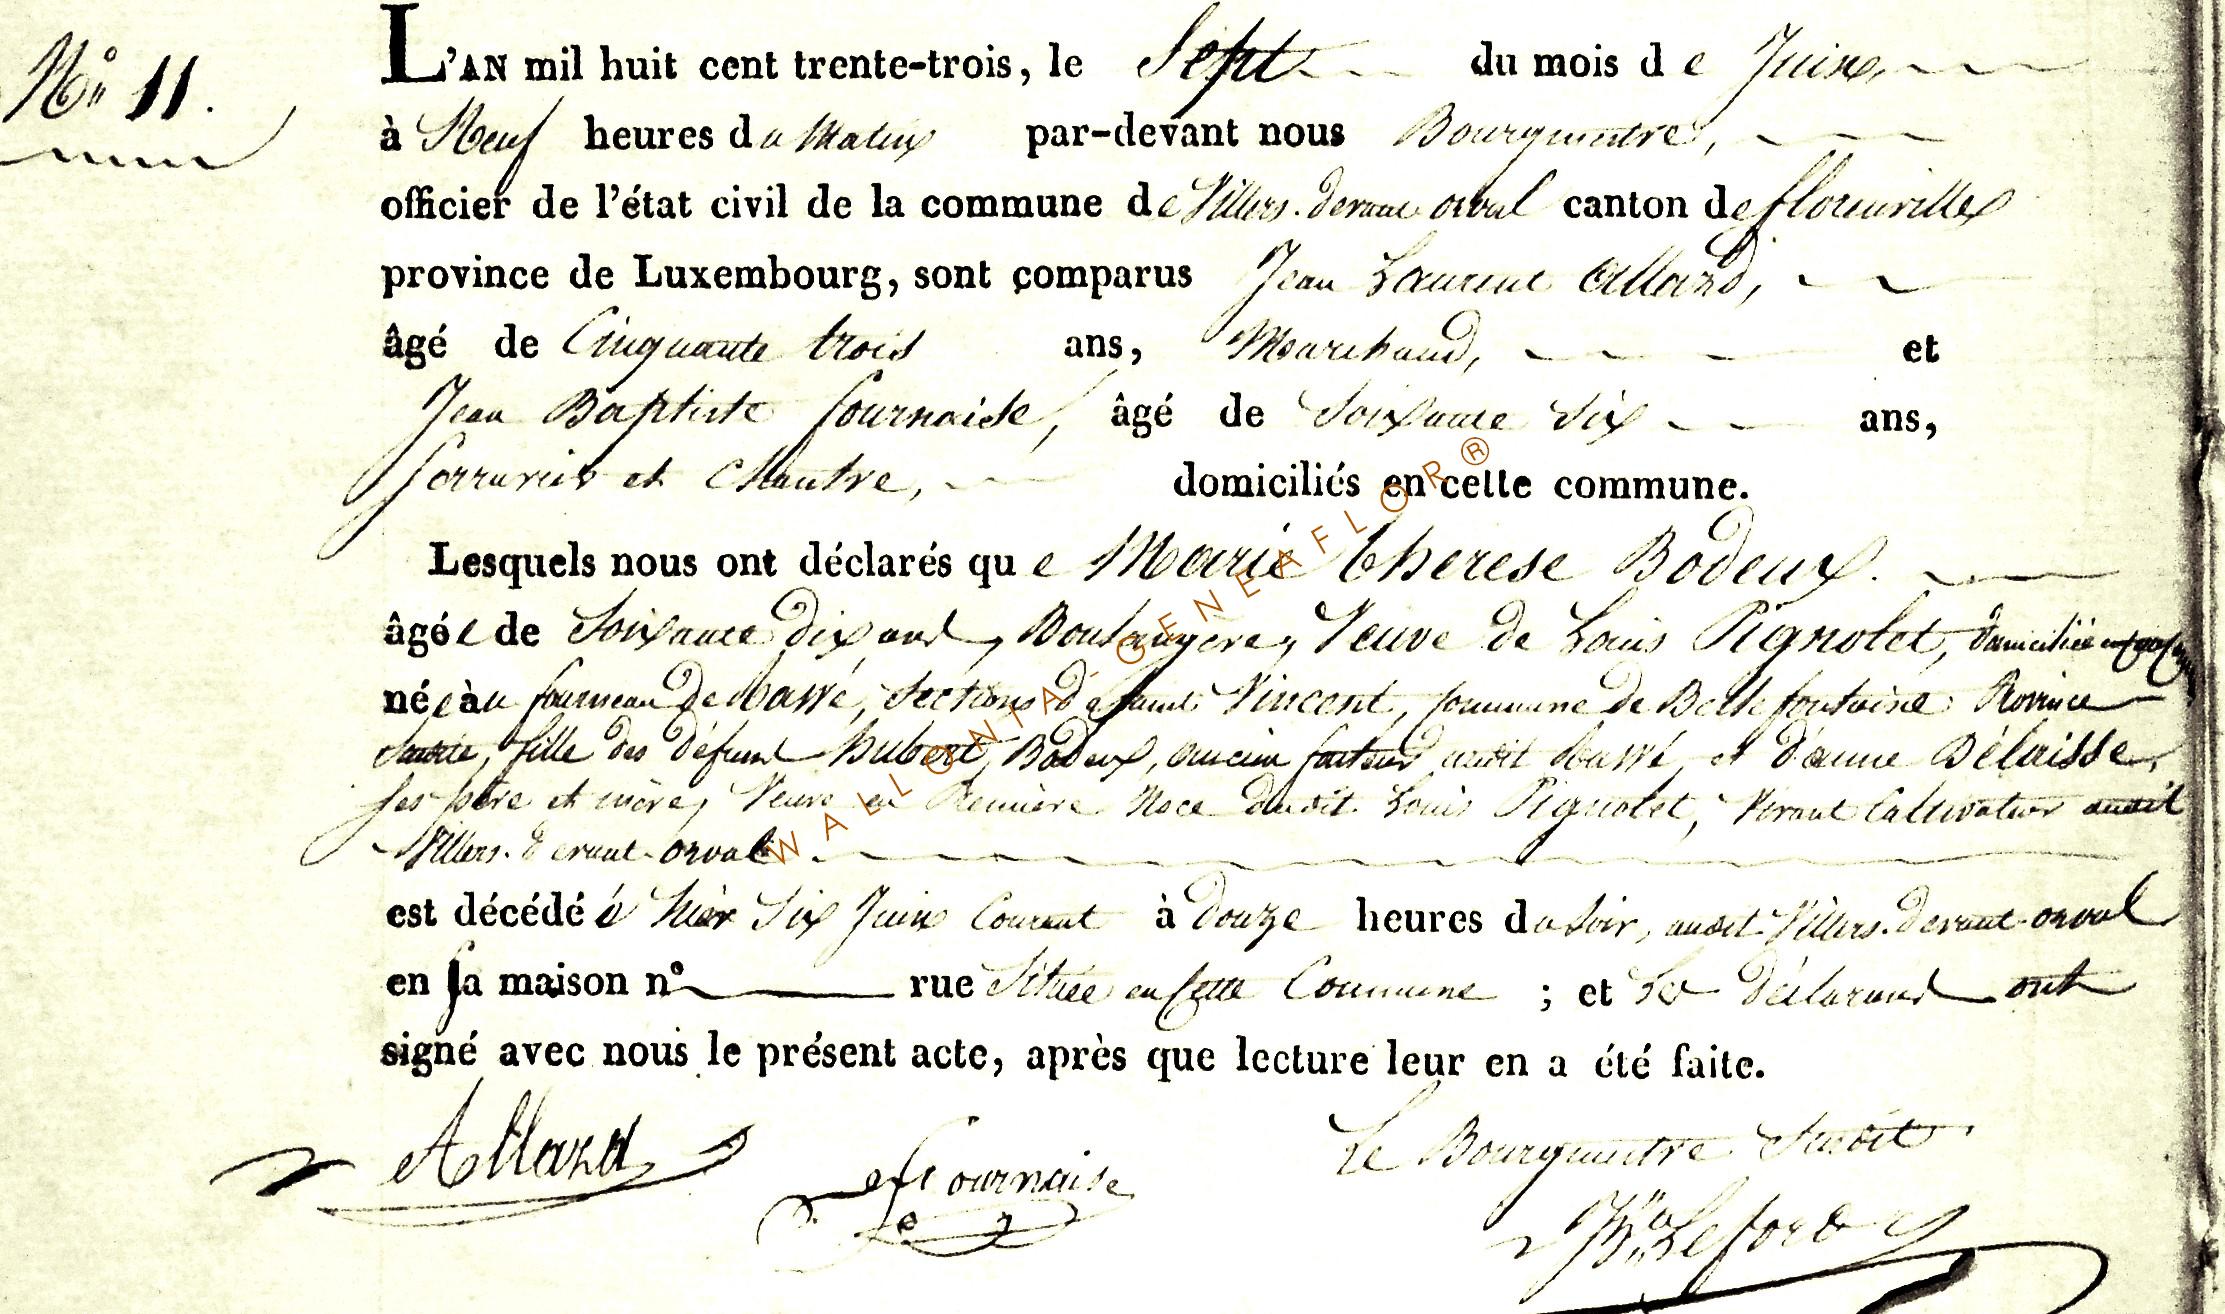 N° 11.
L'AN mil huit cent trente-trois, le Sept du mois de Juin,
à Neuf heures du Matin par-devant nous Bourgmestre,
officier de l'état civil de la commune de Villers-devant-orval canton de florenville
province de Luxembourg, sont comparus Jean Laurent Allard,
âgé de Cinquante trois ans, Marchand, et
Jean Baptiste fournaise, âgé de Soixante Six ans,
Serrurier et Chantre, domiciliés en cette commune.
Lesquels nous ont déclarés que Marie therese Bodeux.
âgée de Soixante dix ans, Boulangère, Veuve de Louis Pignolet, domiciliée en
née au fourneau de, Sections de Saint Vincent, Commune de Bellefontaine Province
Susdite, fille des défunt Hubert Bodeux, ancien facteur audit, et d'anne Délaisse,
Ses père et mère, Veuve en Première Noce dudit Louis Pignolet, Vivant Cultivateur audit
Villers-devant-orval.
est décédée hier Six Juin Courant à douze heures du Soir, audit Villers-devant-orval
en sa maison n° rue Située en Cette Commune ; et Les déclarans ont
signé avec nous le présent acte, après que lecture leur en a été faite.
Allard
fournaise
Le Bourgmestre Susdit
WALLONIA-GENEAFLOR®